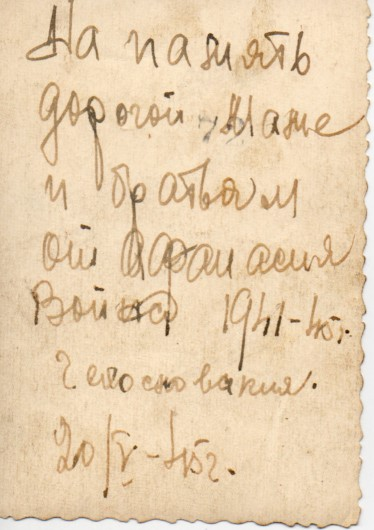 На память
дорогой Маме
и братьям
от Афанасия
Война 1941-45г.
Чехословакия.
20/V-45г.